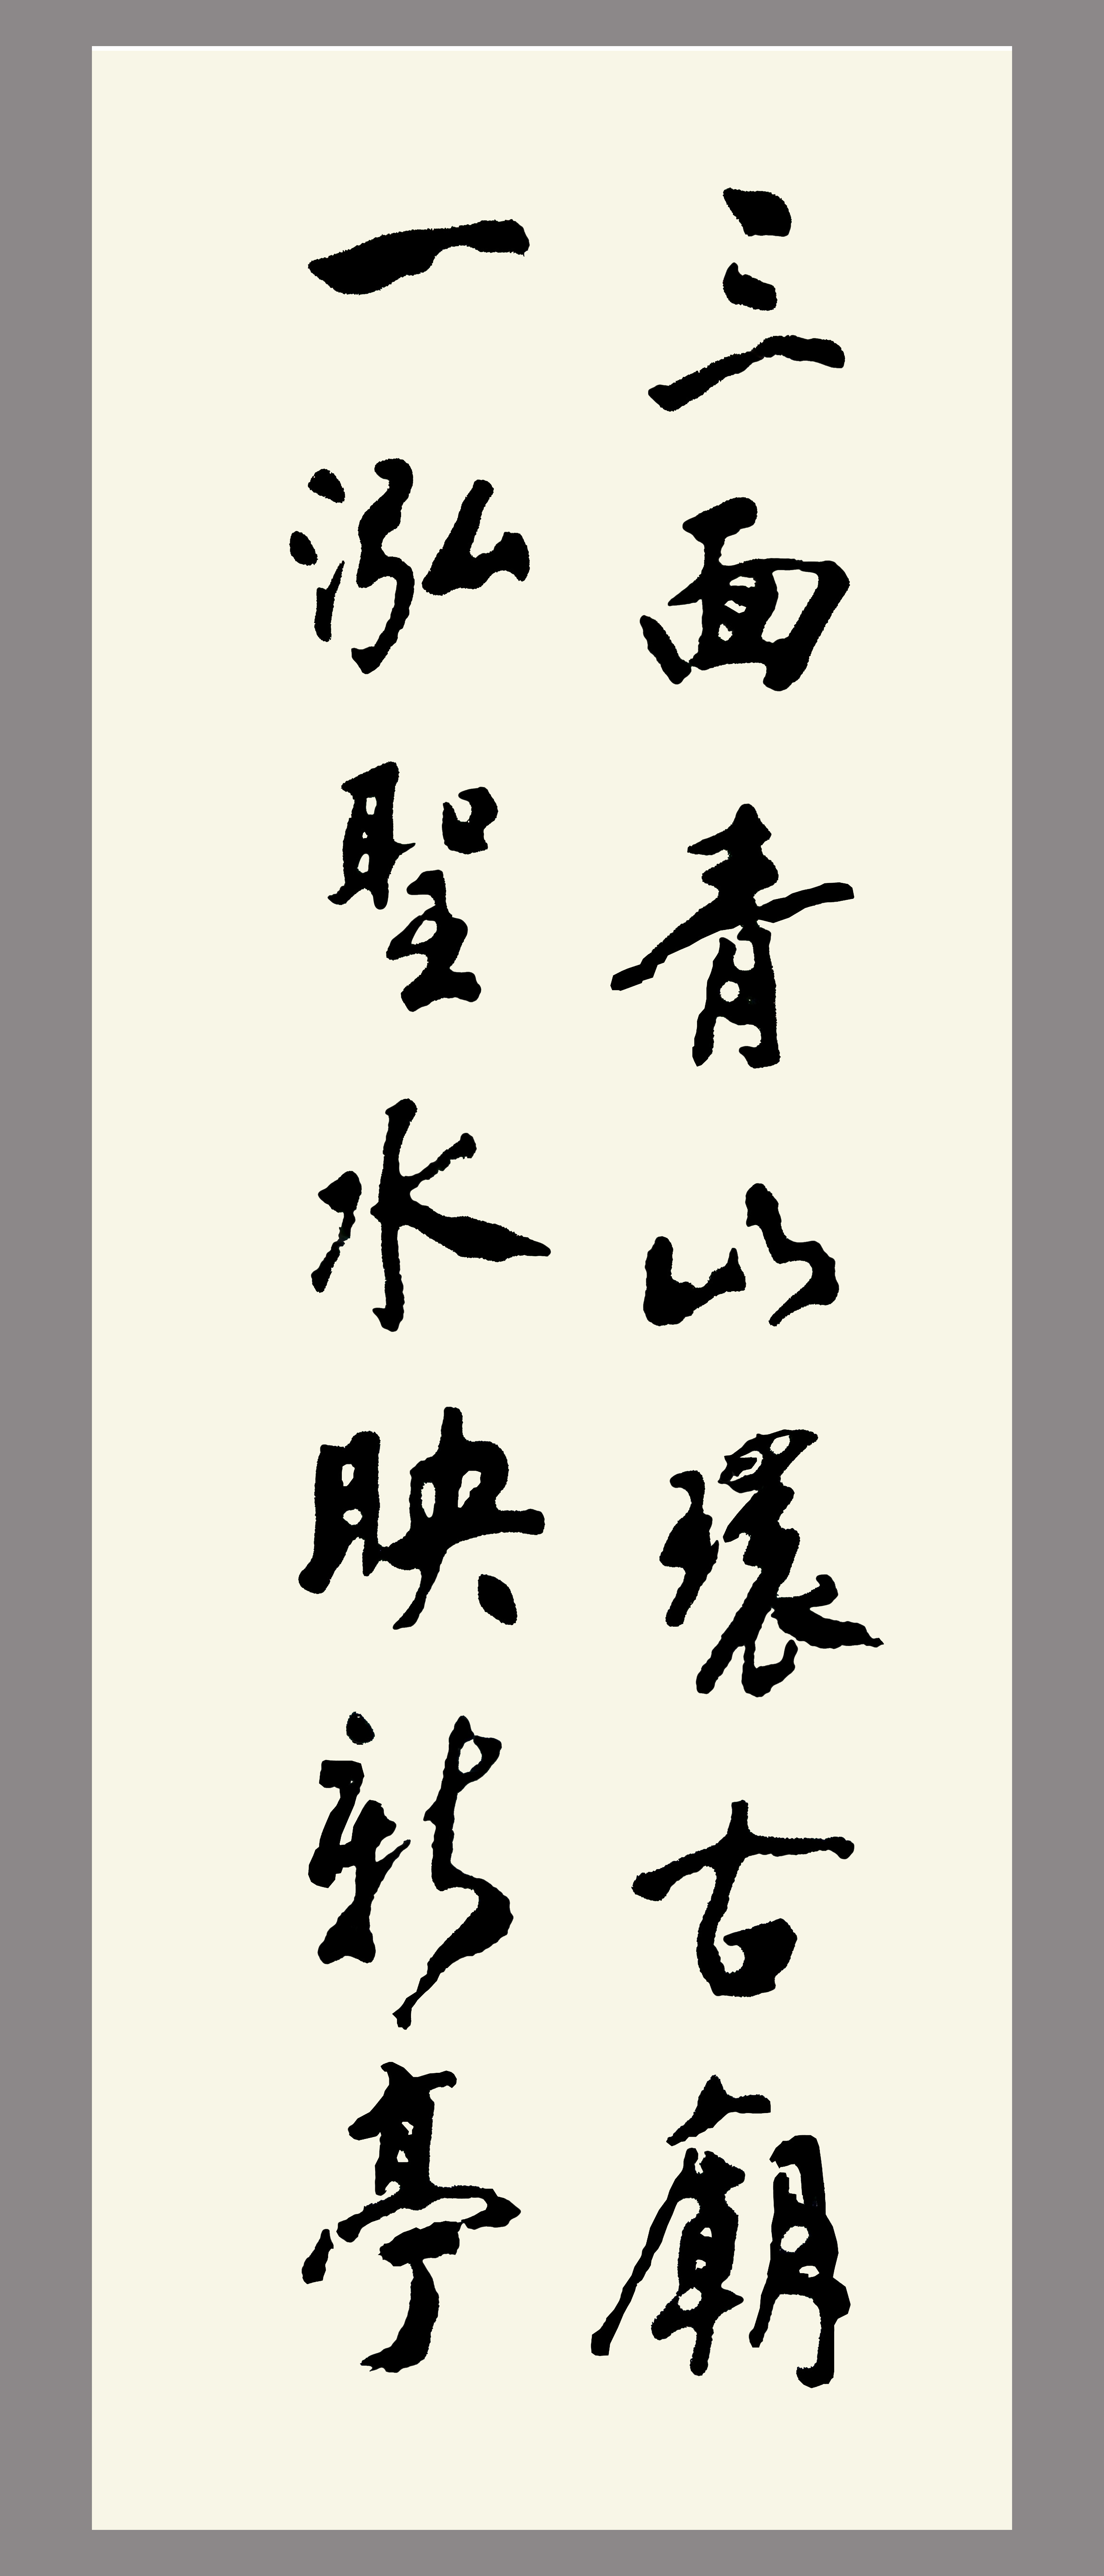 三面青山環古廟
一泓聖水映新亭